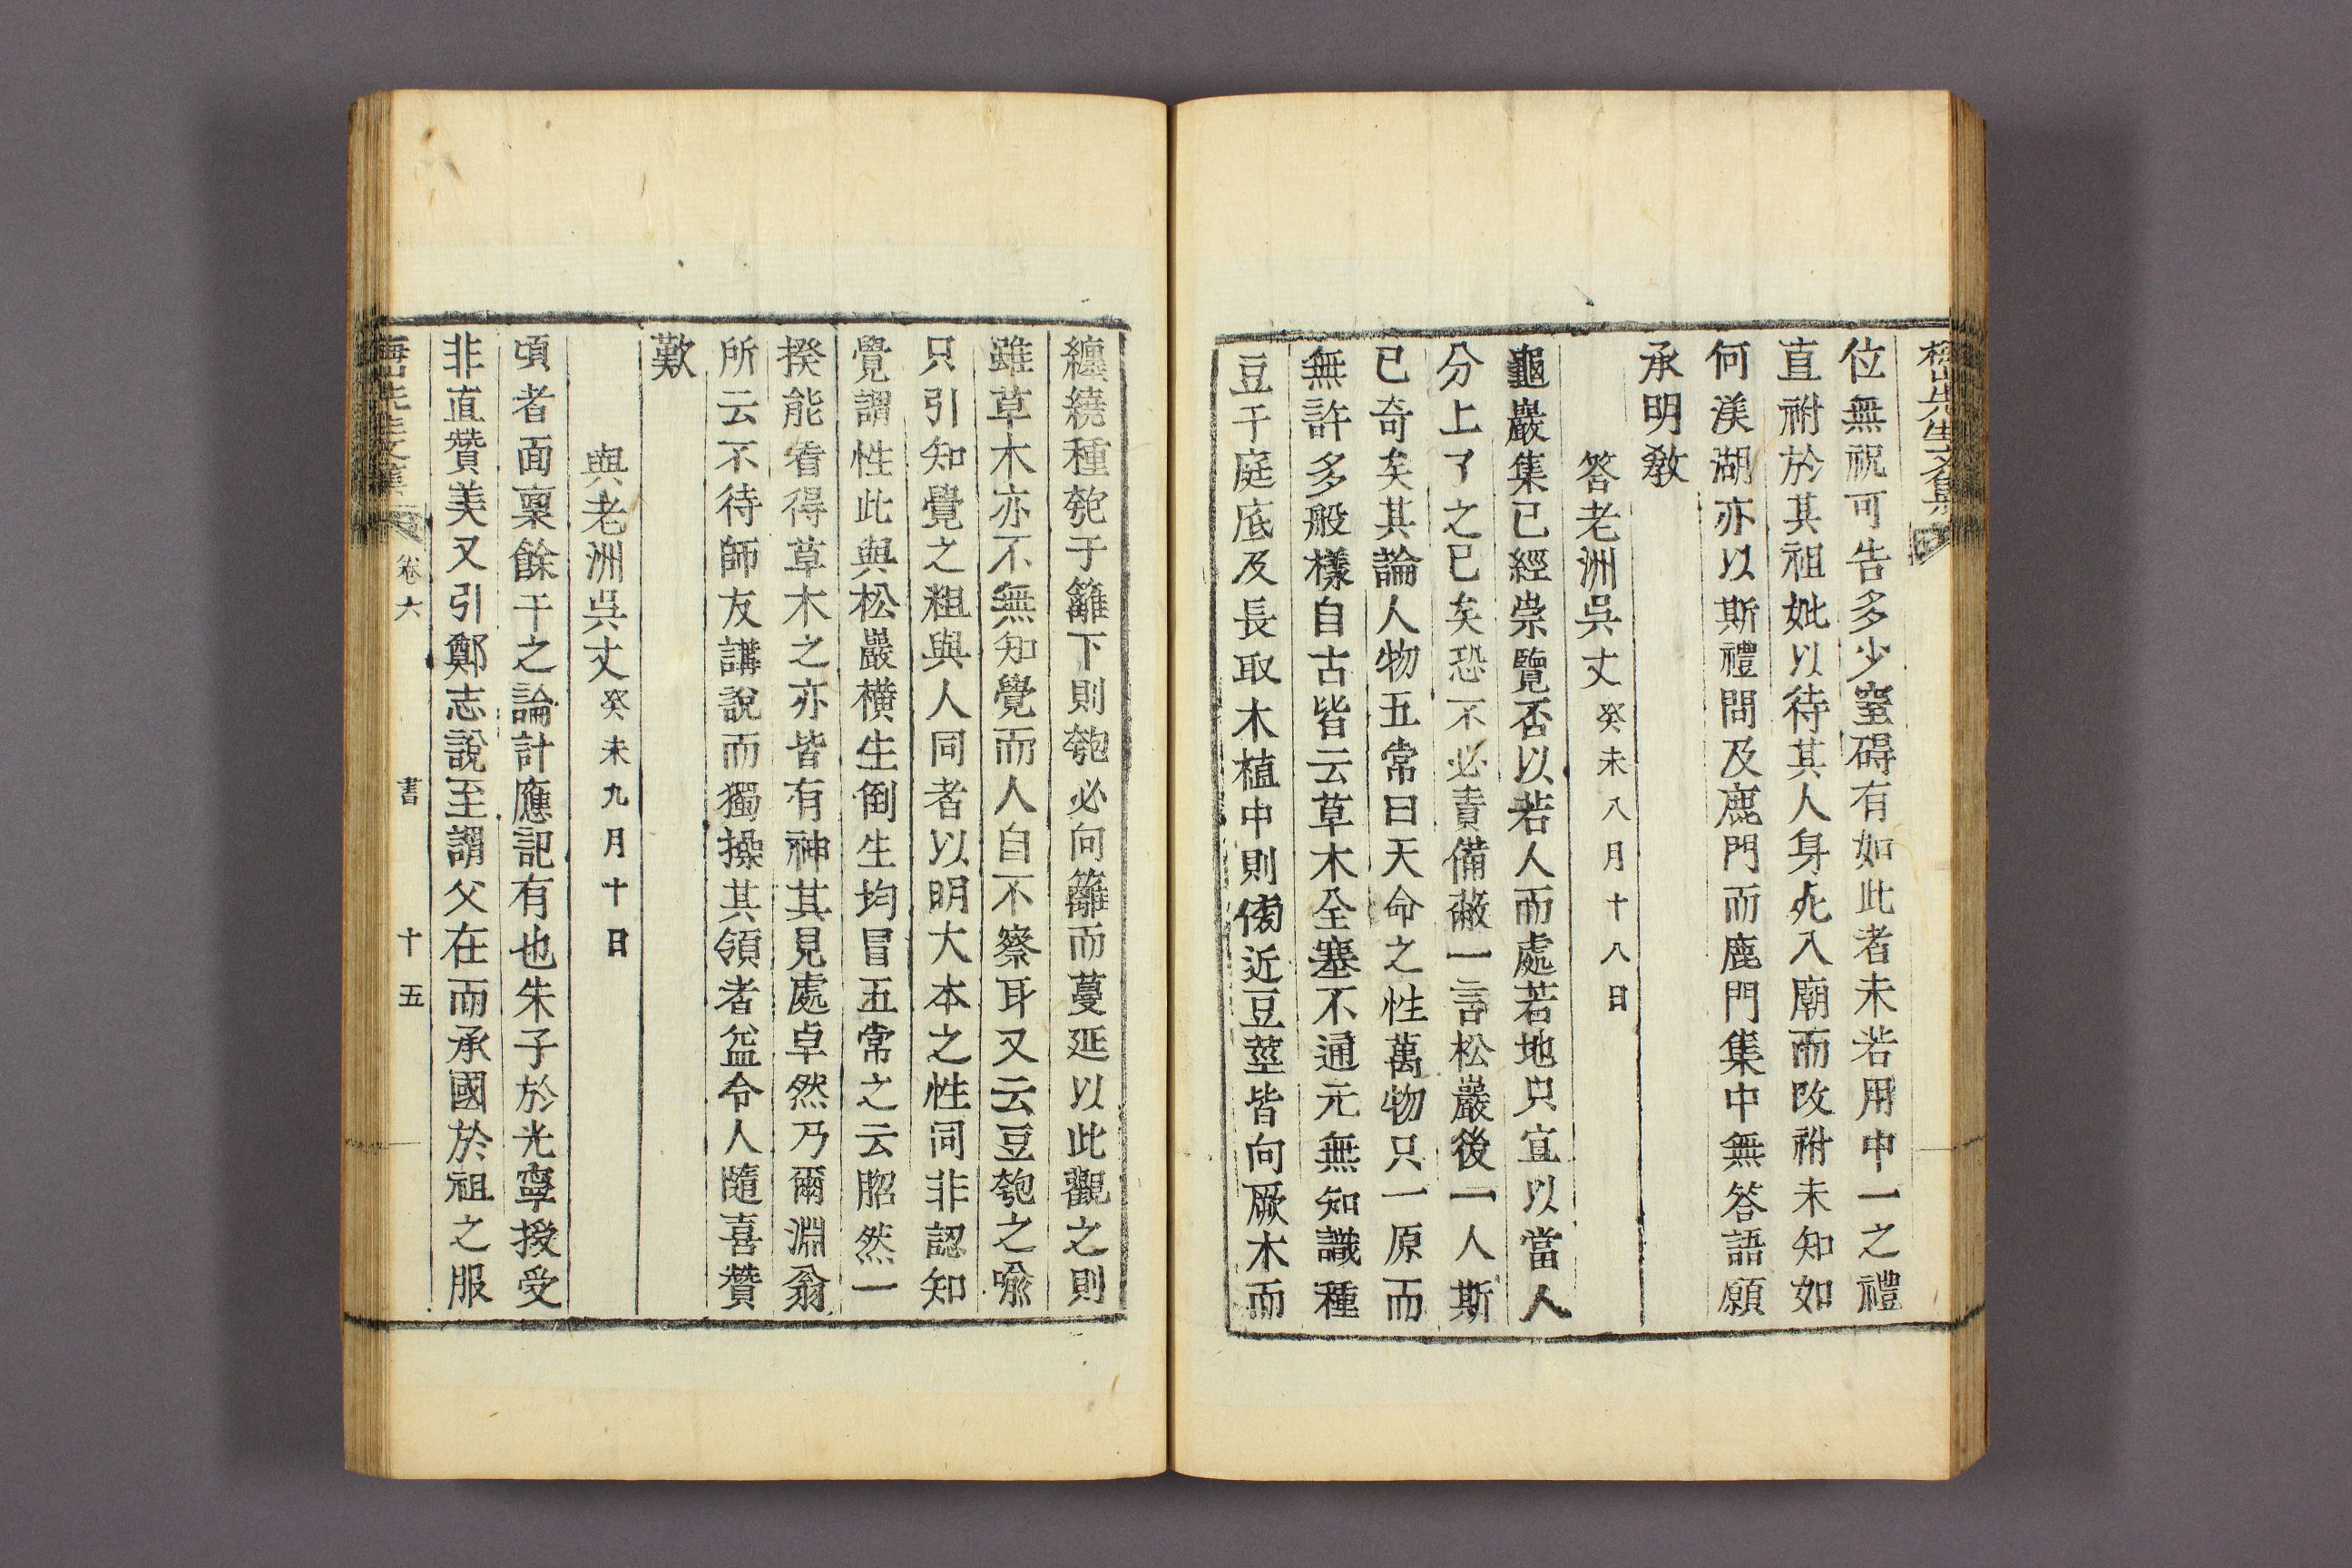 梅山先生文集
位無祝可告多少窒碍有如此者未若用中一之禮
直祔於其祖妣以待其人身死入廟而改祔未知如
何渼湖亦以斯禮問及鹿門而鹿門集中無答語願
承明敎
答老洲吳丈癸未八月十八日
龜巖集已經崇覽否以若人而處若地只宜以當人
分上了之已矣恐不必責備蔽一言松巖後一人斯
已奇矣其論人物五常曰天命之性萬物只一原而
無許多般樣自古皆云草木全塞不通元無知識種
豆于庭底及長取木植中則傍近豆莖皆向厥木而
纏繞種匏于籬下則匏必向籬而蔓延以此觀之則
雖草木亦不無知覺而人自不察耳又云豆匏之喩
只引知覺之粗與人同者以明大本之性同非認知
覺謂性此與松巖橫生倒生均冒五常之云脗然一
揆能看得草木之亦皆有神其見處卓然乃爾淵翁
所云不待師友講說而獨操其領者益令人隨喜贊
歎
與老洲吳丈癸未九月十日
頃者面稟餘干之論計應記有也朱子於光寧授受
非直贊美又引鄭志說至謂父在而承國於祖之服
梅山先生文集 卷六 書 十五